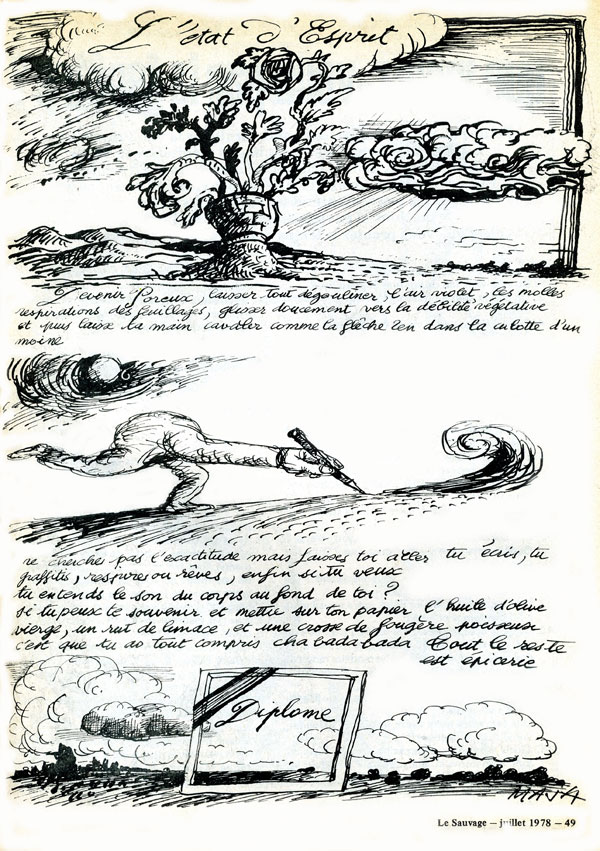 L'état d'Esprit
Devenir Poreux, laisser tout dégouliner, l'air violet, les molles
respirations des feuillages, glisser doucement vers la débilité végétative
et puis laisse ta main cavaler comme la flèche zen dans la culotte d'un
moine
ne cherches pas l'exactitude mais laisses toi aller tu écris, tu
graffitis, respires ou rêves, enfin si tu veux
tu entends le son du corps au fond de toi ?
si tu peux te souvenir et mettre sur ton papier l'huile d'olive
vierge, un rut de limace, et une crosse de fougère poisseuse
c'est que tu as tout compris chabadabada Tout le reste
est épicerie
Diplome
MAJA
Le Sauvage – juillet 1978 – 49